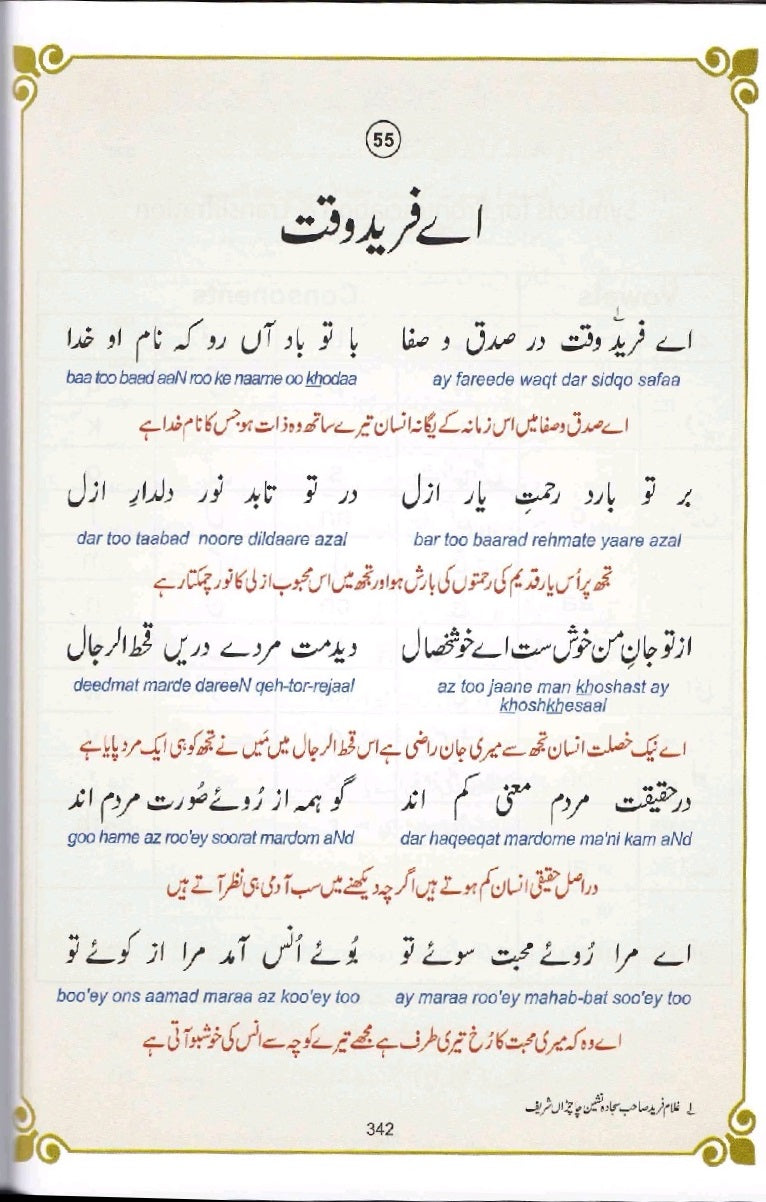 55
اے فرید وقت
اے فریدؔ وقت در صدق و صفا با تو باد آں رو کہ نام او خدا
ay fareede waqt dar sidqo safaa baa too baad aaN roo ke naame oo khodaa
اے صدق وصفا میں اس زمانہ کے یگانہ انسان تیرے ساتھ وہ ذات ہو جس کا نام خدا ہے
بر تو بارد رحمتِ یار ازل در تو تابد نور دلدارِ ازل
bar too baarad rehmate yaare azal dar too taabad noore dildaare azal
تجھ پر اُس یار قدیم کی رحمتوں کی بارش ہو اور تجھ میں اس محبوب ازلی کا نور چمکتا رہے
از تو جانِ من خوش ست اے خوشخصال دیدمت مردے دریں قحط الرجال
az too jaane man khoshast ay khoshkhesaal deedmat marde dareeN qeh-tor-rejaal
اے نیک خصلت انسان تجھ سے میری جان راضی ہے اس قحط الرجال میں مَیں نے تجھ کو ہی ایک مرد پایا ہے
درحقیقت مردم معنی کم اند گو ہمہ از رُوئے صُورت مردم اند
dar haqeeqat mardome ma'ni kam aNd goo hame az roo'ey soorat mardom aNd
دراصل حقیقی انسان کم ہوتے ہیں اگرچہ دیکھنے میں سب آدمی ہی نظر آتے ہیں
اے مرا رُوئے محبت سوئے تو بُوئے اُنس آمد مرا از کوئے تو
ay maraa roo'ey mahab-bat soo'ey too boo'ey ons aamad maraa az koo'ey too
اے وہ کہ میری محبت کا رُخ تیری طرف ہے مجھے تیرے کوچہ سے انس کی خوشبو آتی ہے
لے غلام فرید صاحب سجادہ نشین چاچڑاں شریف
342